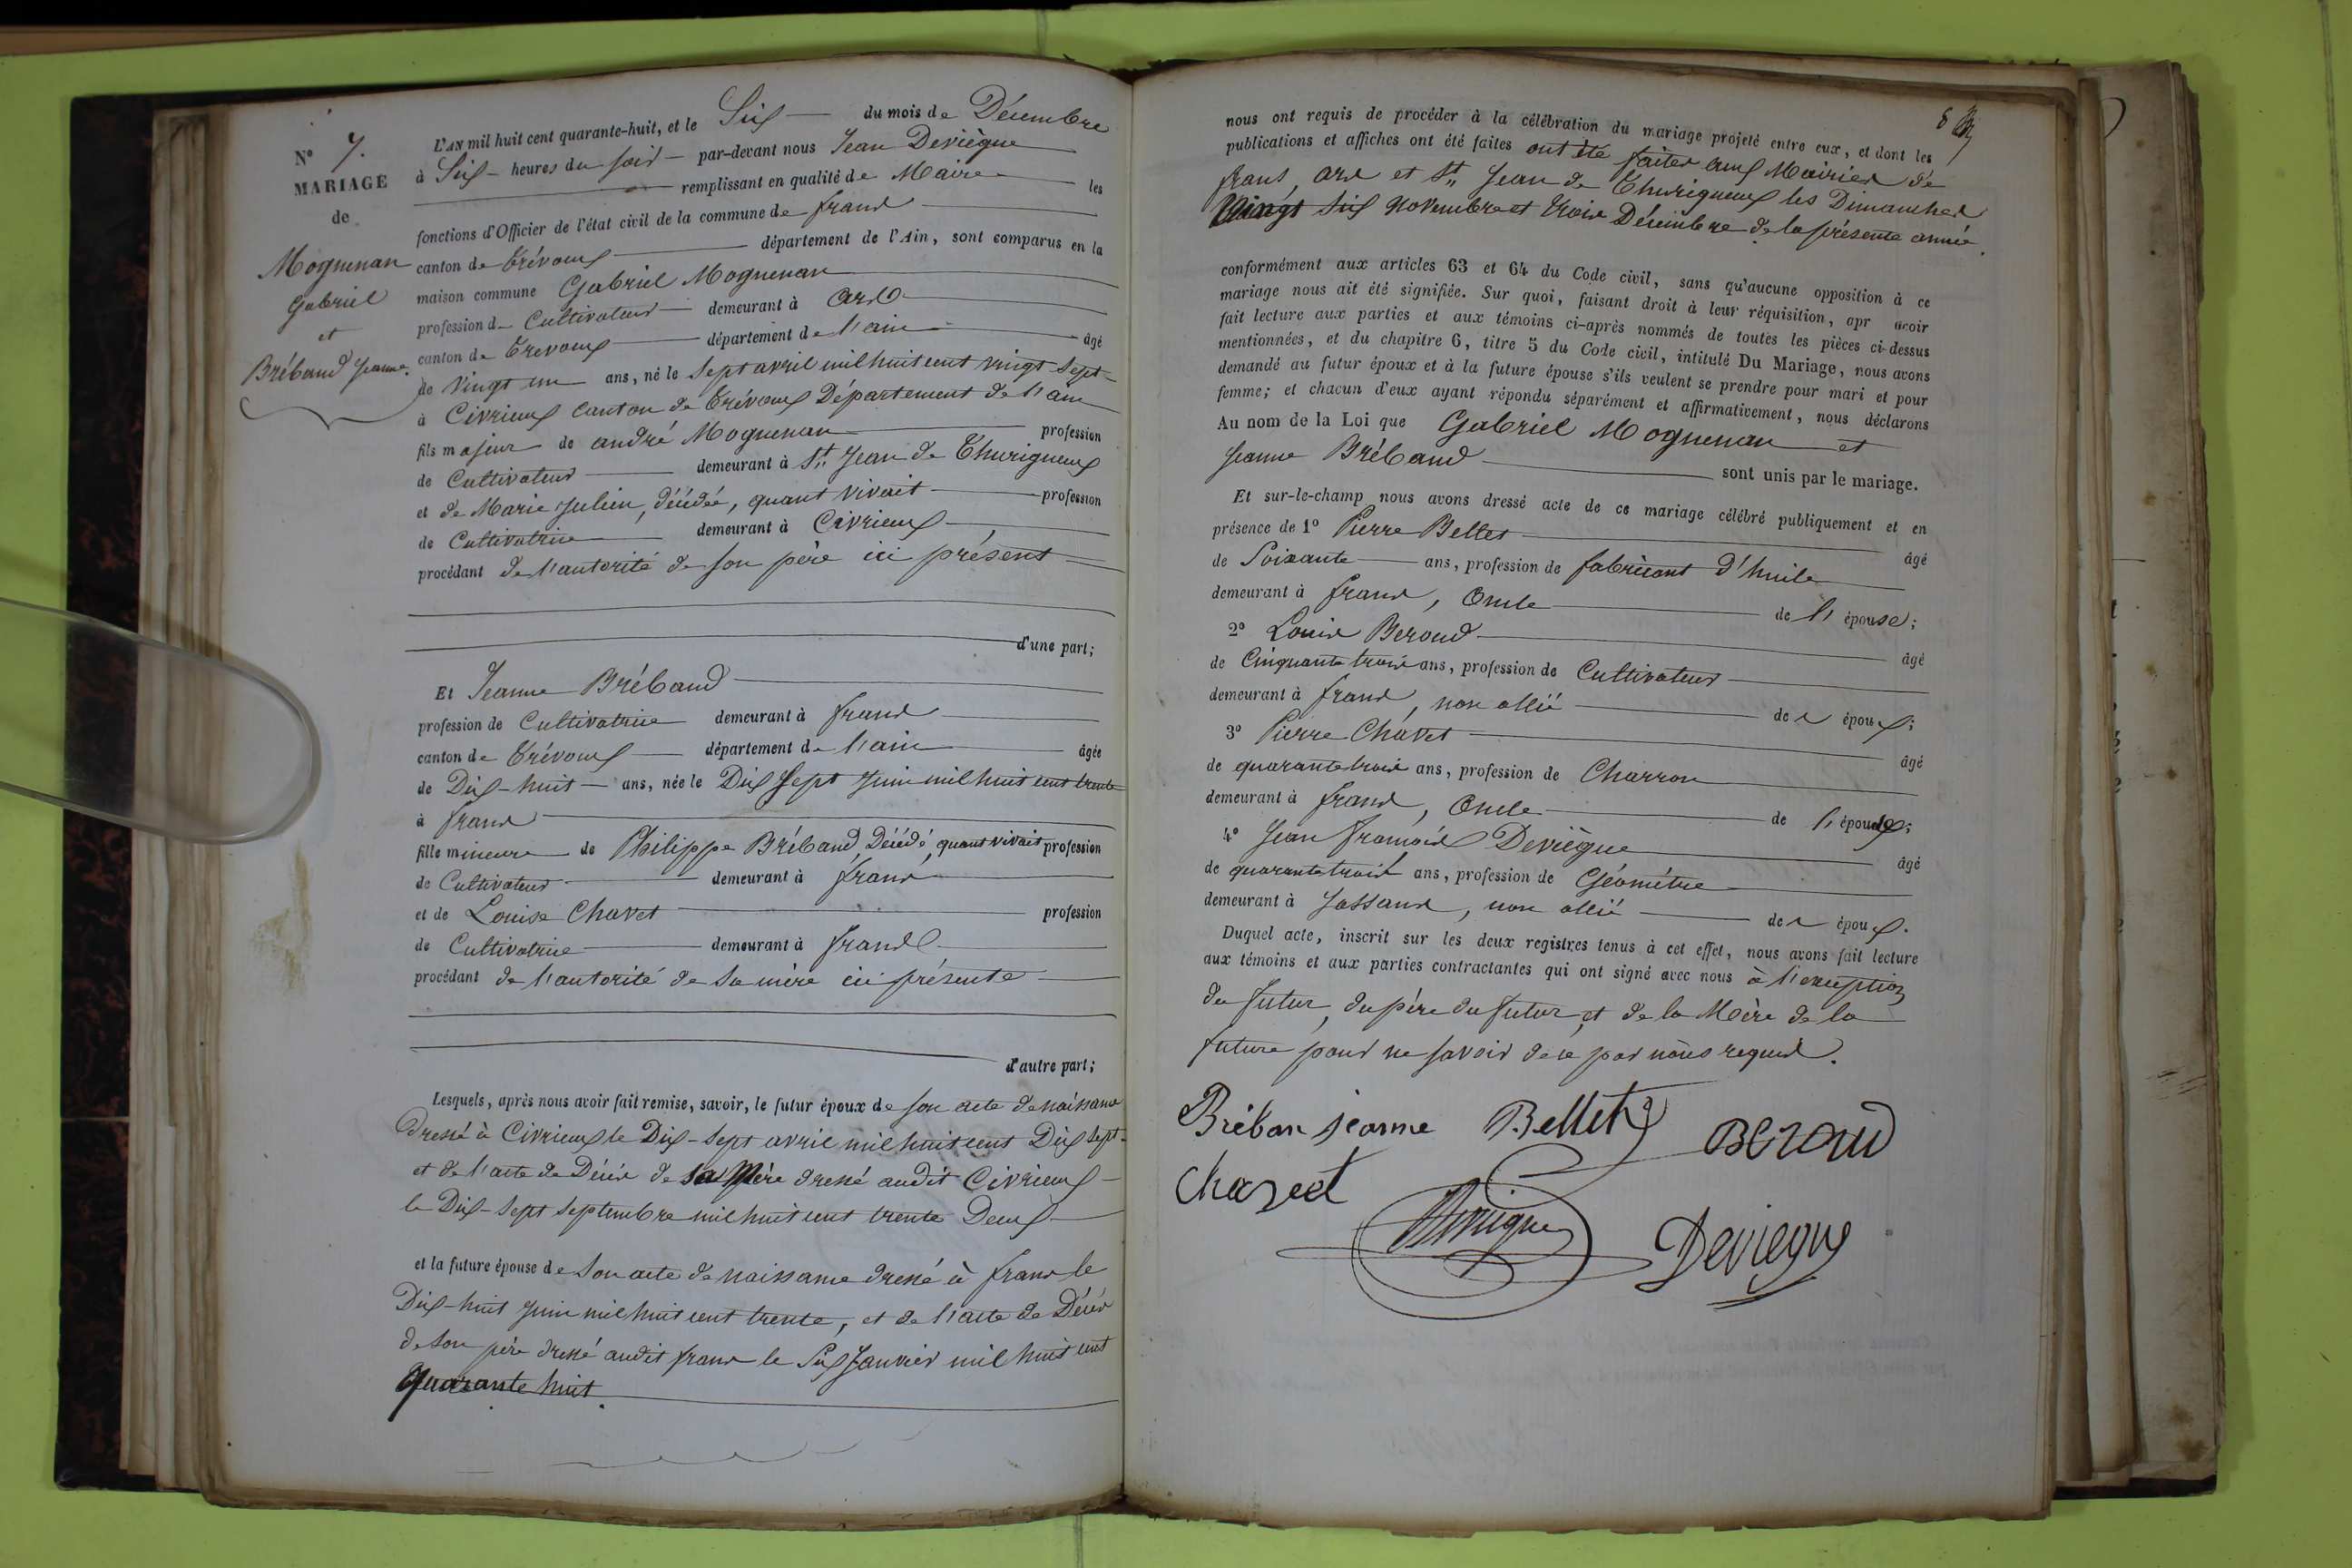 N° 7.
MARIAGE
de
Moguenan
Gabriel
et
Brébaud Jeanne.
L'AN mil huit cent quarante-huit, et le Six du mois de Décembre
à Six heures du soir par-devant nous Jean Deviègue
remplissant en qualité de Maire les
fonctions d'Officier de l'état civil de la commune de frans
canton de Trévoux département de l'Ain, sont comparus en la
maison commune Gabriel Moguenan
profession de Cultivateur demeurant à Ars
canton de Trevoux département de l'ain âgé
de Vingt un ans, né le Sept avril mil huit cent vingt Sept
à Civrieux canton de Trévoux Département de l'ain
fils majeur de andré Moguenan profession
de Cultivateur demeurant à St Jean de Thurigneux
et de Marie Julien, décédée, quant vivait profession
de Cultivatrice demeurant à Civrieux
procédant de l'autorité de son père ici présent
d'une part;
Et Jeanne Brébaud
profession de Cultivatrice demeurant à frans
canton de Trévoux département de l'ain âgée
de Dix-huit ans, née le Dix Sept Juin mil huit cent trente
à frans
fille mineure de Philippe Brébaud, Décédé, quant vivait profession
de Cultivateur demeurant à frans
et de Louise Chavet profession
de Cultivatrice demeurant à frans
procédant de l'autorité de Sa mère ici présente
d'autre part;
Lesquels, après nous avoir fait remise, savoir, le futur époux de son acte de naissance
dressé à Civrieux le Dix-Sept avril mil huit cent Dix Sept
et de l'acte de Décés de sa Mère dressé audit Civrieux
le Dix-Sept Septembre mil huit cent trente Deux
et la future épouse de Son acte de naissance dressé à frans le
Dix-huit Juin mil huit cent trente, et de l'acte de Décés
de son père dressé audit frans le Six Janvier mil huit cent
Quarante huit.
8
nous ont requis de procéder à la célébration du mariage projeté entre eux, et dont les
publications et affiches ont été faites ont été faites aux Mairies de
frans, ars et St Jean de Thurigneux les Dimanches
Vingt Six Novembre et trois Décembre de la présente année.
conformément aux articles 63 et 64 du Code civil, sans qu'aucune opposition à ce
mariage nous ait été signifiée. Sur quoi, faisant droit à leur réquisition, apr avoir
fait lecture aux parties et aux témoins ci-après nommés de toutes les pièces ci-dessus
mentionnées, et du chapitre 6, titre 5 du Code civil, intitulé Du Mariage, nous avons
demandé au futur époux et à la future épouse s'ils veulent se prendre pour mari et pour
femme; et chacun d'eux ayant répondu séparément et affirmativement, nous déclarons
Au nom de la Loi que Gabriel Moguenan et
Jeanne Brébaud sont unis par le mariage.
Et sur-le-champ nous avons dressé acte de ce mariage célébré publiquement et en
présence de 1° Pierre Bellet âgé
de Soixante ans, profession de fabricant d'huile
demeurant à frans, Oncle de l'épouse;
2° Louis Beroud âgé
de Cinquante trois ans, profession de Cultivateur
demeurant à frans, non allié des époux;
3° Pierre Chavet âgé
de quarante trois ans, profession de Charron
demeurant à frans, Oncle de l'épouse;
4° Jean François Deviègue âgé
de quarante trois ans, profession de Géomètre
demeurant à Jassans, non allié des époux.
Duquel acte, inscrit sur les deux registres tenus à cet effet, nous avons fait lecture
aux témoins et aux parties contractantes qui ont signé avec nous à l'exception
du futur, du père du futur, et de la Mère de la
future pour ne savoir de ce par nous requis.
Bréban jeanne Bellet BEROUD
Chavet Deviègue Deviegue